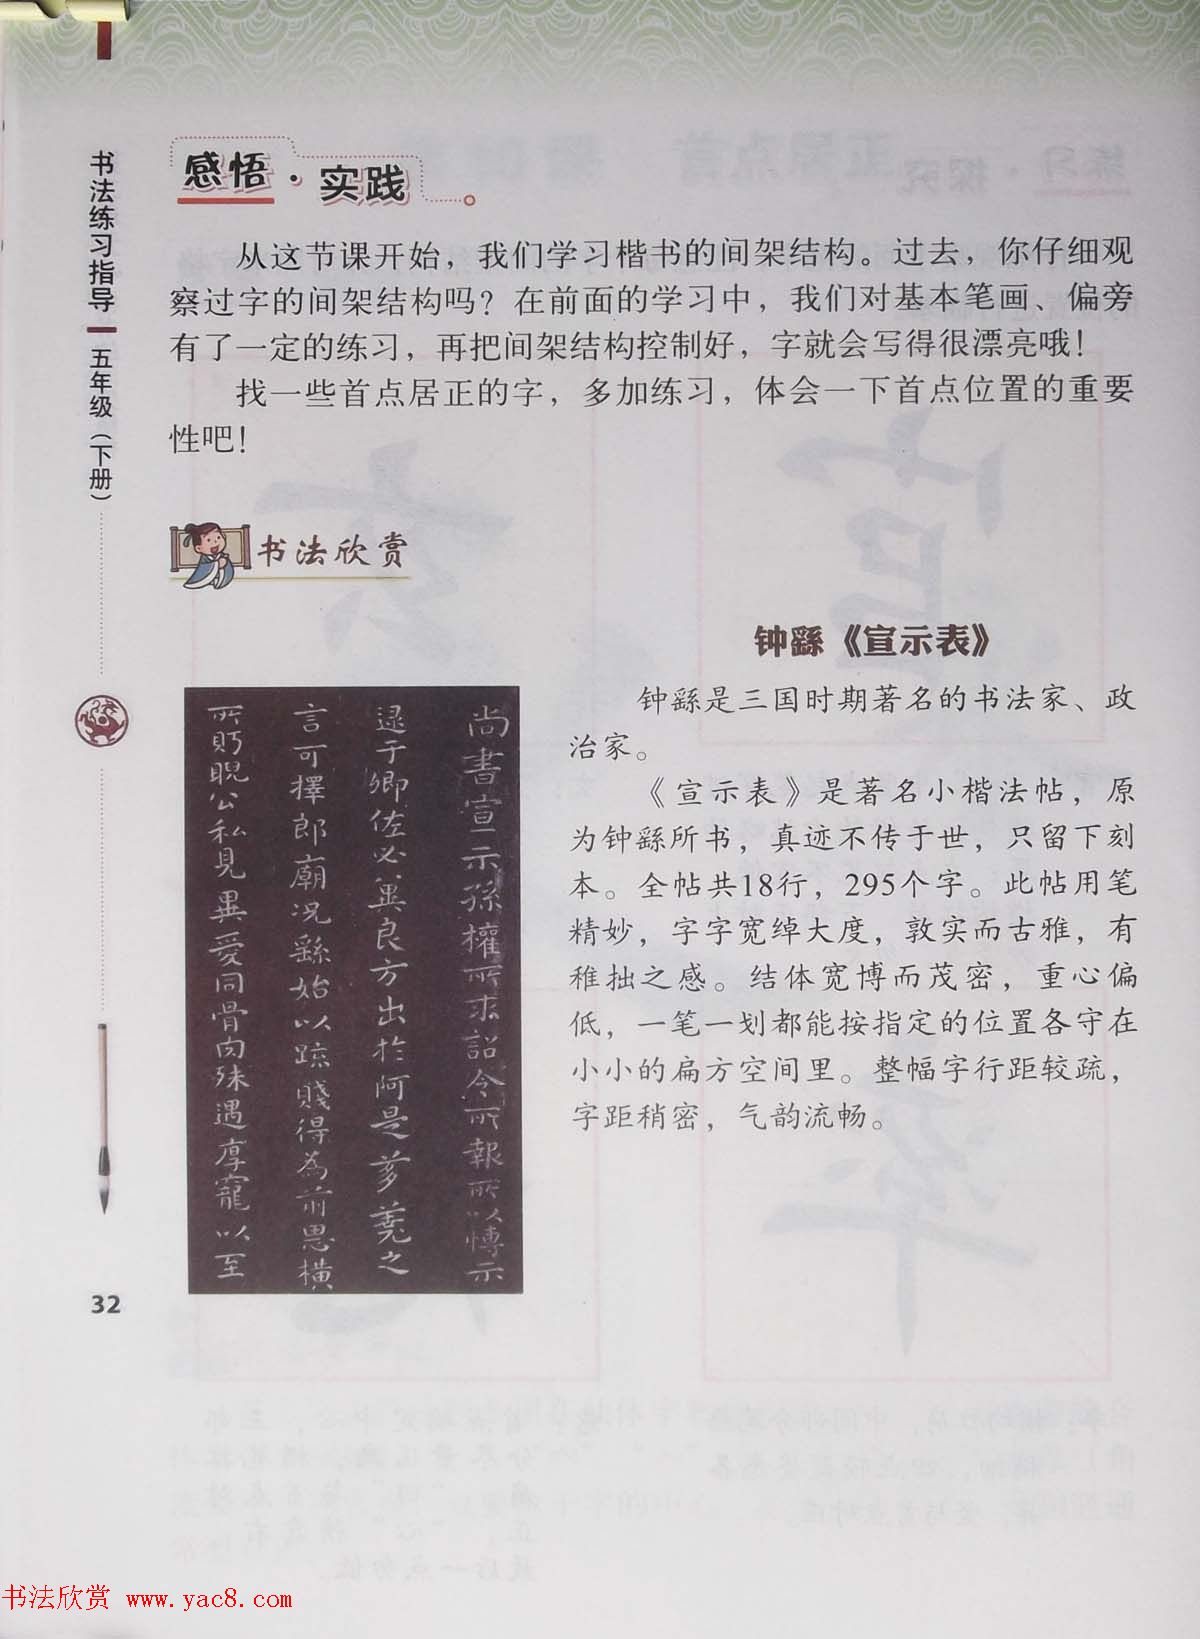 书法练习指导 五年级（下册）
感悟·实践
从这节课开始，我们学习楷书的间架结构。过去，你仔细观
察过字的间架结构吗？在前面的学习中，我们对基本笔画、偏旁
有了一定的练习，再把间架结构控制好，字就会写得很漂亮哦！
找一些首点居正的字，多加练习，体会一下首点位置的重要
性吧！
书法欣赏
钟繇《宣示表》
尚書宣示孫權所求詔令所報所以博示
逮于卿佐必冀良方出於阿是芻蕘之
言可擇郎廟況繇始以疏賤得為前恩橫
所眄睨公私見異愛同骨肉殊遇厚寵以至
钟繇是三国时期著名的书法家、政
治家。
《宣示表》是著名小楷法帖，原
为钟繇所书，真迹不传于世，只留下刻
本。全帖共18行，295个字。此帖用笔
精妙，字字宽绰大度，敦实而古雅，有
稚拙之感。结体宽博而茂密，重心偏
低，一笔一划都能按指定的位置各守在
小小的扁方空间里。整幅字行距较疏，
字距稍密，气韵流畅。
32
书法欣赏 www.yac8.com